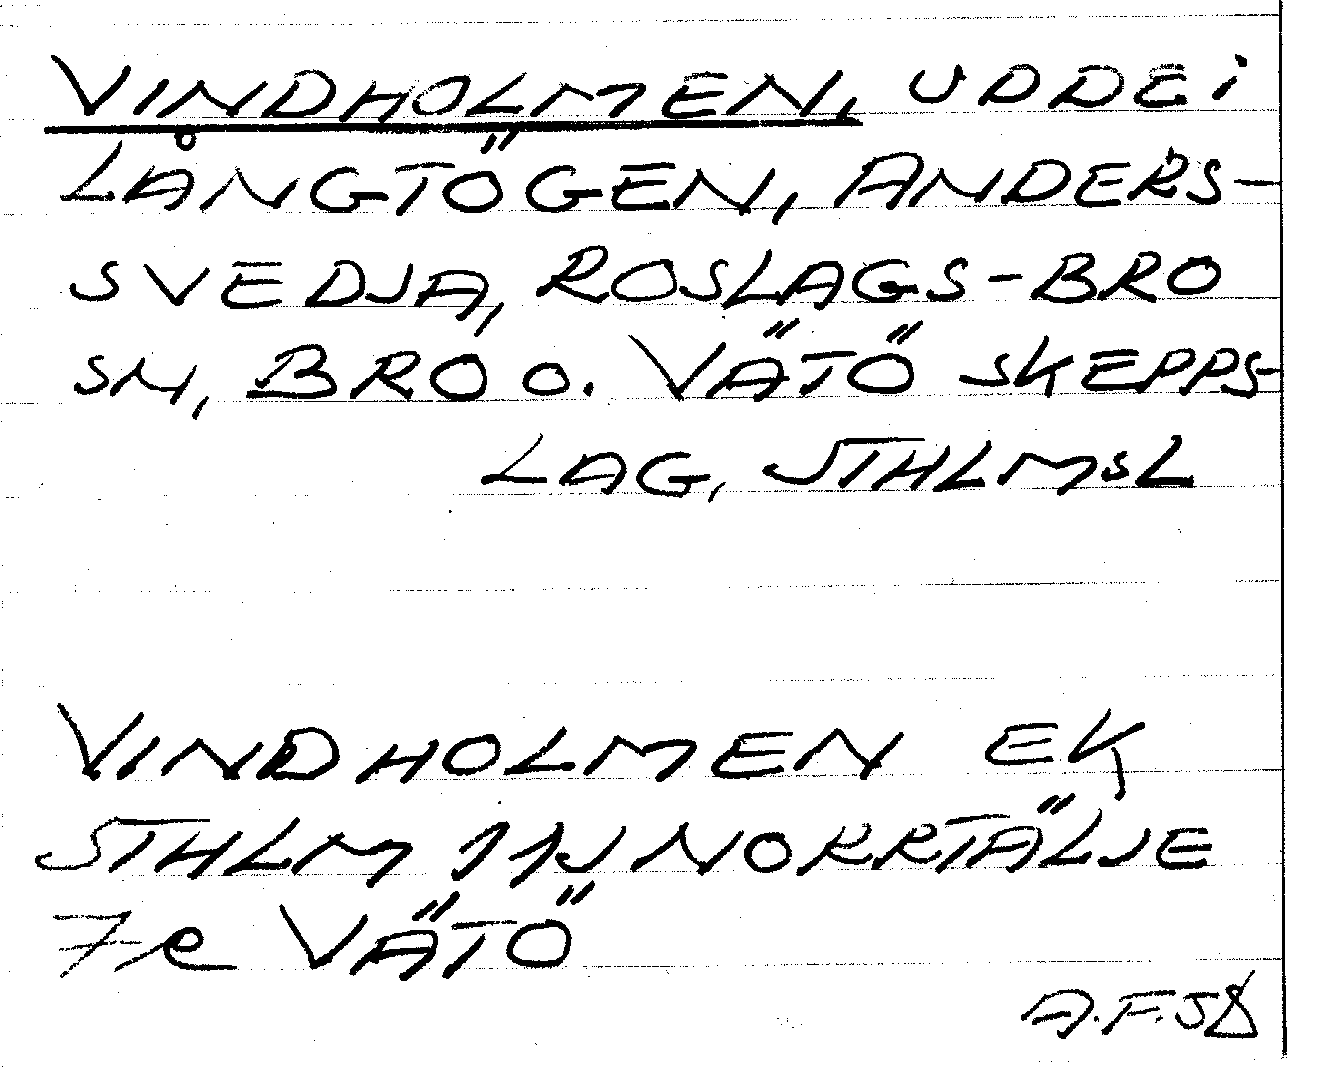 VINDHOLMEN, UDDE i
LÅNGTÖGEN, ANDERS-
SVEDJA, ROSLAGS-BRO
SN, BRO O. VÄTÖ SKEPPS-
LAG, STHLMSL
VINDHOLMEN EK
STHLM 11J NORRTÄLJE
7e VÄTÖ